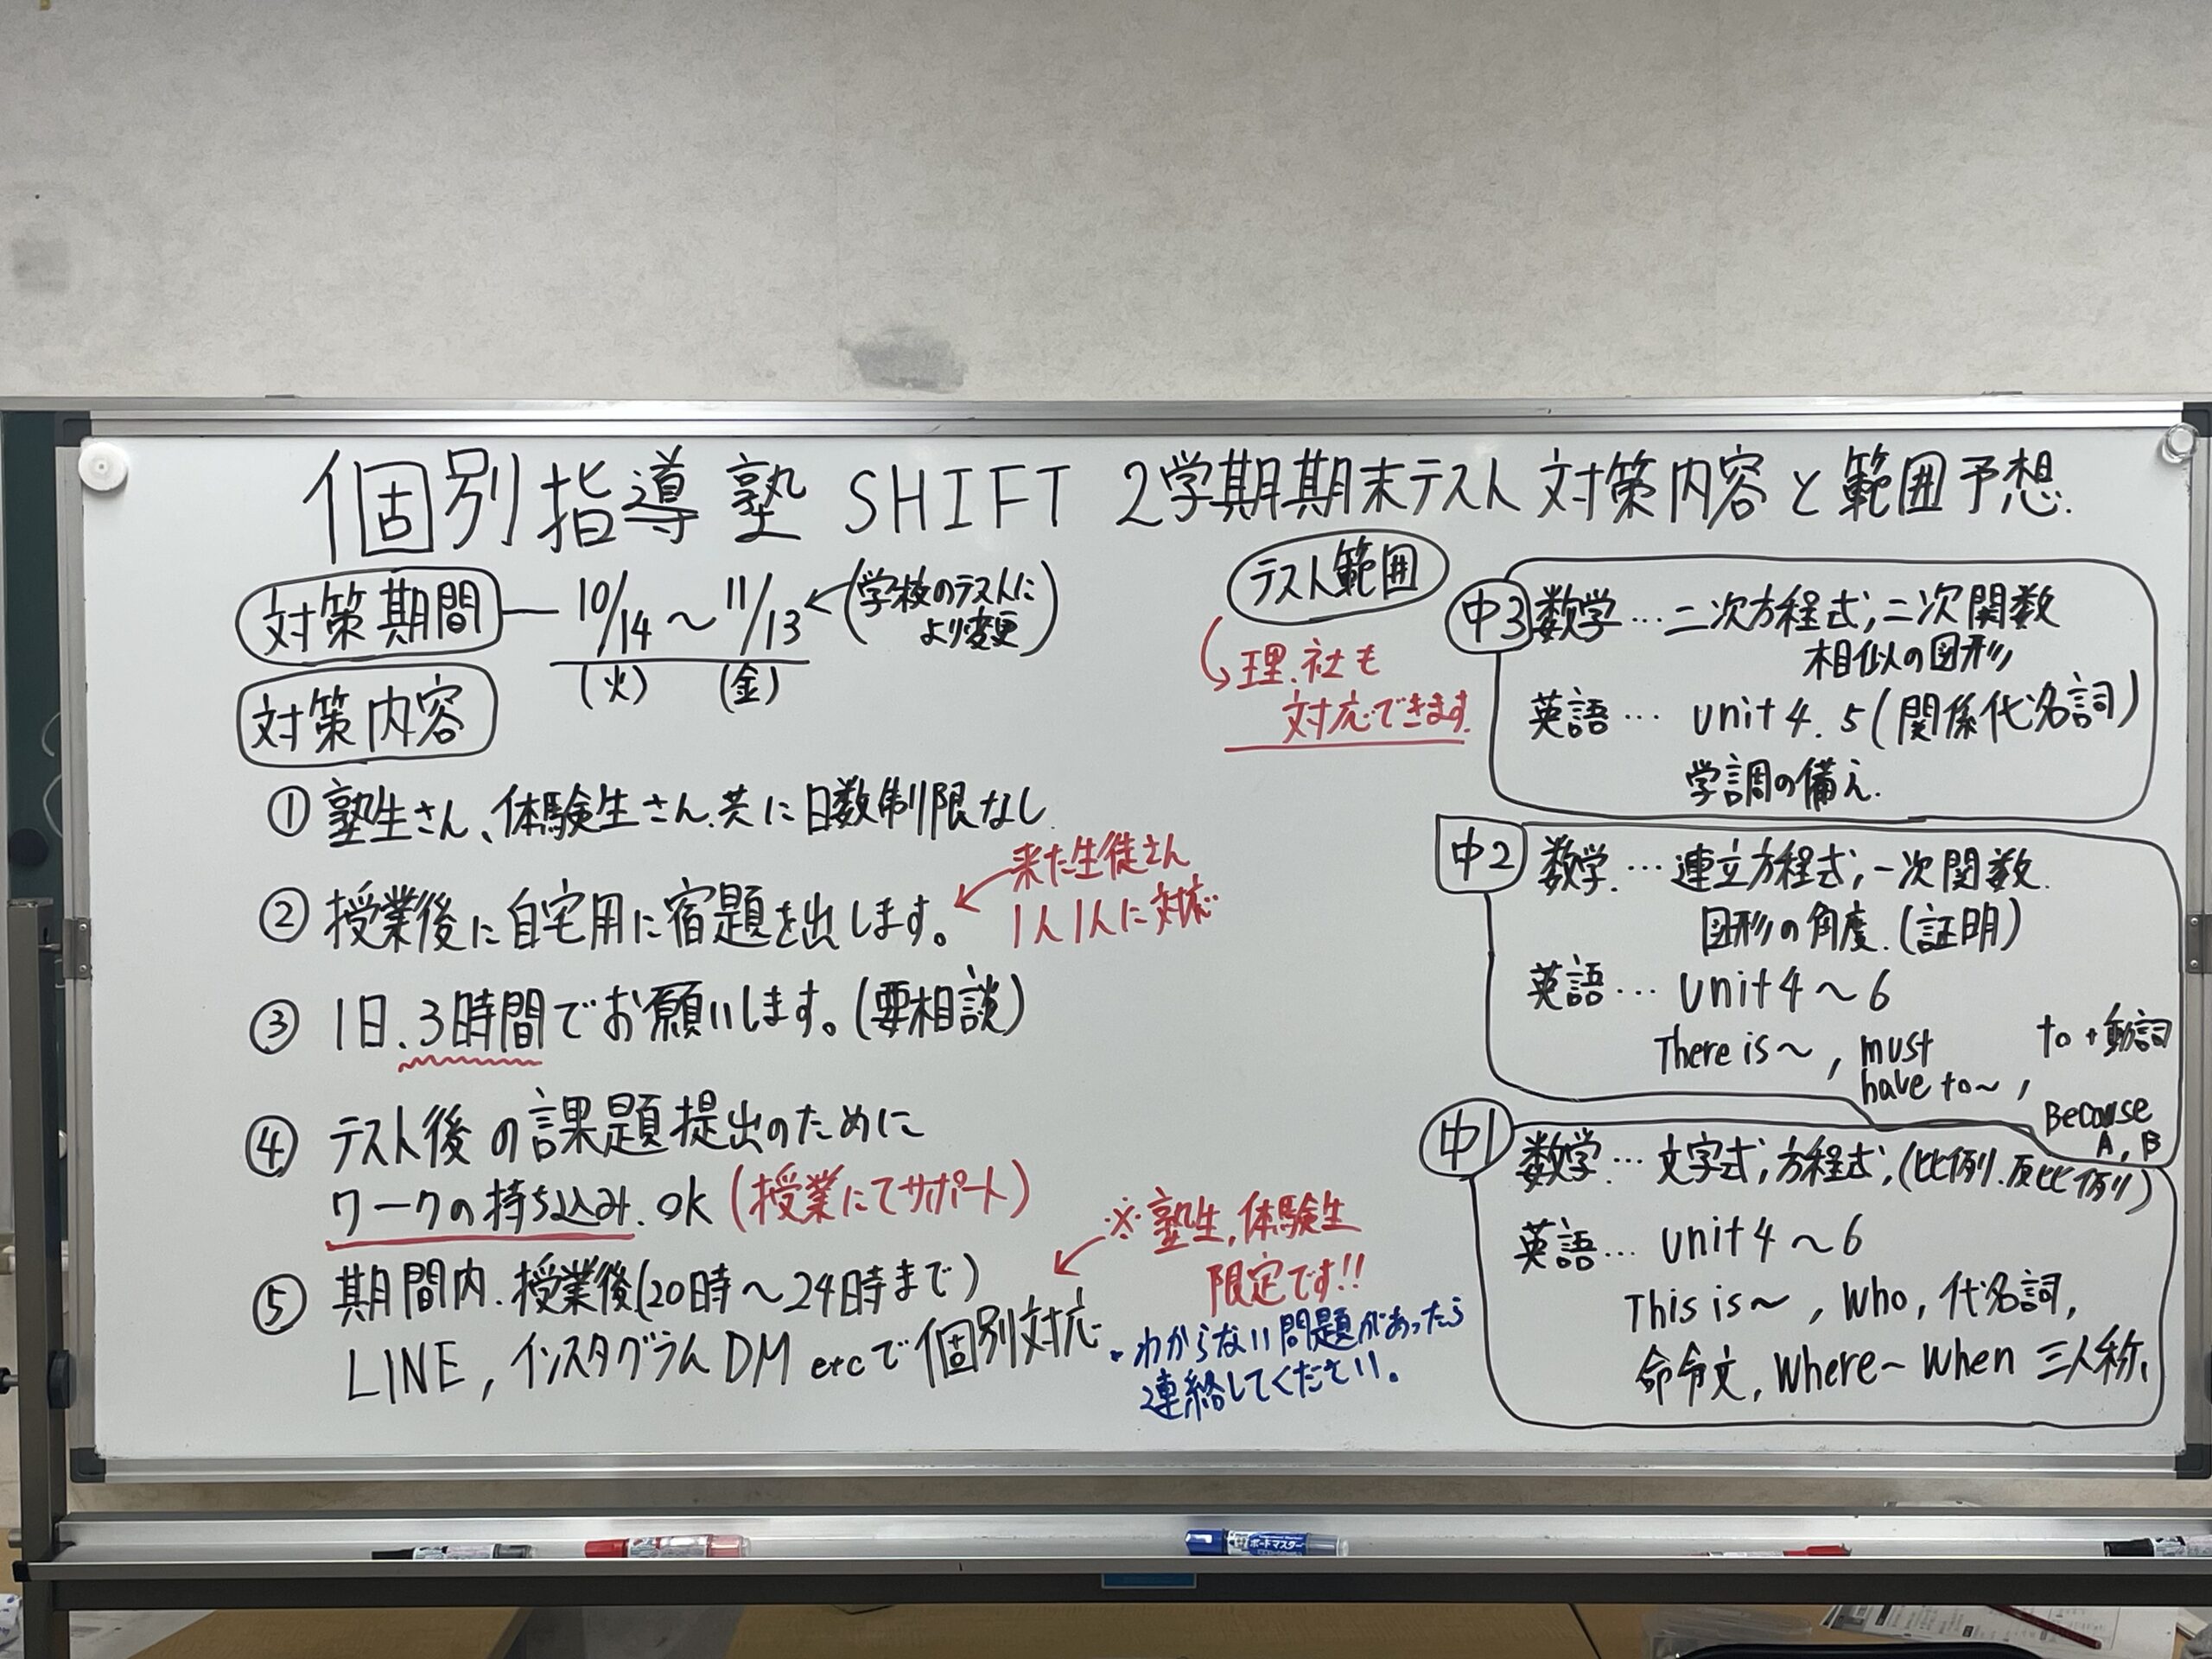 個別指導塾 SHIFT 2学期期末テスト対策内容と範囲予想.
対策期間 10/14 ～ 11/13 (学校のテストに
より変更)
(火) (金)
対策内容
① 塾生さん、体験生さん.共に日数制限なし.
② 授業後に自宅用に宿題を出します。
来た生徒さん
1人1人に対応
③ 1日.3時間でお願いします。(要相談)
④ テスト後の課題提出のために
ワークの持ち込み.OK (授業にてサポート)
⑤ 期間内.授業後(20時～24時まで)
LINE, インスタグラムDM etcで個別対応
※塾生,体験生
限定です!!
・わからない問題があったら
連絡してください。
テスト範囲
理.社も
対応できます.
中3 数学…二次方程式,二次関数
相似の図形
英語… unit 4. 5 (関係代名詞)
学調の備え.
中2 数学.…連立方程式,一次関数.
図形の角度.(証明)
英語… unit 4～6
There is～, must
have to～,
to+動詞
Because
A, B
中1 数学…文字式,方程式,(比例.反比例)
英語… unit 4～6
This is～, Who, 代名詞,
命令文, Where～ When 三人称、
ボードマスター